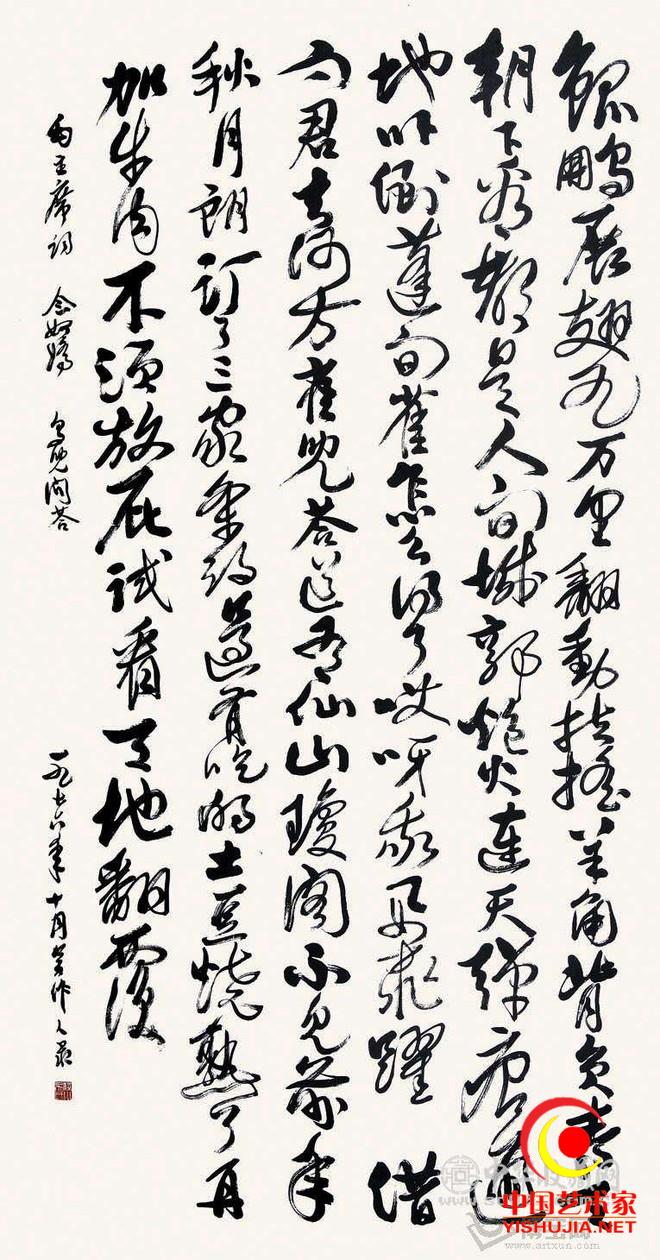 鯤鵬展翅九万里翻動扶摇羊角背負青天
朝下看都是人间城郭炮火連天弹痕遍
地吓倒蓬间雀怎么得了哎呀我要飛躍 借
问君去何方雀兒答道有仙山瓊阁不見前年
秋月朗訂了三家条约还有吃的土豆燒熟了再
加牛肉不須放屁試看天地翻覆
毛主席詞 念奴嬌 鸟兒问答
一九七六年十月吴作人录
中国艺术家
YISHUJIA.NET
www.artxun.com